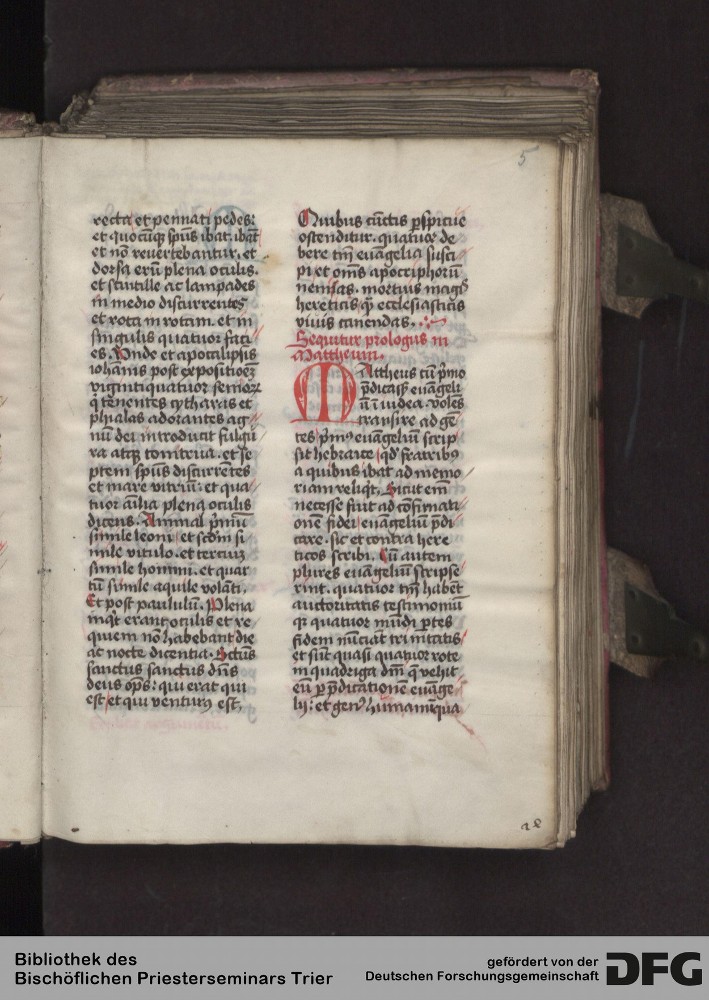 5
recta et pennati pedes:
et quocūqꝫ spūs ibat. ibāt
et nō reuertebantur. et
dorsa eorū plena oculis.
et scintille ac lampades
in medio discurrentes
et rota in rotam. et in
singulis quatuor faci
es. Vnde et apocalipsis
iohānis post expositionē
viginti quatuor senioꝝ
q̄ tenentes cytharas et
phialas adorantes ag
nū dei introducit fulgu
ra atqꝫ tonitrua. et se
ptem spūs discurrētes
et mare vitriū: et qua
tuor aīalia plena oculis
dicens. Animal pͥmū
simile leoni et scdm si
mile vitulo. et terciuꝫ
simile homini. et quar
tū simile aquile volāti.
Et post paululū. Plena
inqͥt erant oculis et re
quiem nō habebant die
ac nocte dicentia. Sctūs
sanctus sanctus dn̄s
deus op̄s: qui erat qui
est et qui venturꝰ est.
Quibus cūctis ꝑspicue
ostenditur. quatuor de
bere tm̄ euāgelia susci
pi et om̄s apocriphorū
nenias. mortuis magꝭ
hereticis qͣ ecclesiasticis
viuis canendas.
Sequitur prologus in
Mattheum.
MAttheus cū pͥmo
p̄dicasset euāgeli
ū ī iudea. volēs
transire ad gē
tes pͥmꝰ euāgeliū scrip
sit hebraice qd̓ fratribꝰ
a quibus ibat ad memo
riam reliqͥt. Sicut em̄
necesse fuit ad cōfirmati
onē fidei euāgeliū p̄di
care. sic et contra here
ticos scribi. Cū autem
plures euāgeliū scripse
rint. quatuor tm̄ habēt
auctoritatis testimoniū
qꝫ quatuor mūdi ꝑtes
fidem nūciāt trinitatis
et sūt quasi quatuor rote
in quadriga dn̄i q̄ vehit
eū ꝑ p̄dicationē euāge
lij: et genꝰ humanū qua
28
Bibliothek des
Bischöflichen Priesterseminars Trier
gefördert von der
Deutschen Forschungsgemeinschaft
DFG